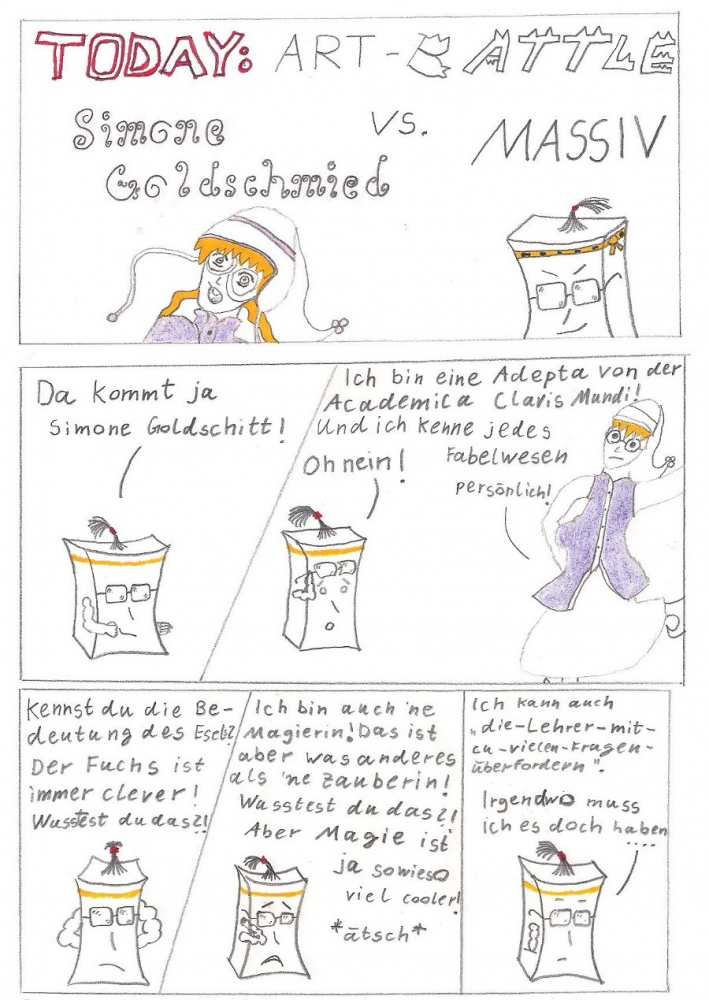 TODAY: ART-BATTLE
Simone
Goldschmied
VS.
MASSIV
Da kommt ja
Simone Goldschitt!
Ich bin eine Adepta von der
Academica Clavis Mundi!
Und ich kenne jedes
Fabelwesen
persönlich!
Oh nein!
Kennst du die Be-
deutung des Esels?
Der Fuchs ist
immer clever!
Wusstest du das?!
Ich bin auch 'ne
Magierin! Das ist
aber was anderes
als 'ne Zauberin!
Wusstest du das?!
Aber Magie ist
ja sowieso
viel cooler!
*ätsch*
Ich kann auch
„die-Lehrer-mit-
zu-vielen-Fragen-
überfordern".
Irgendwo muss
ich es doch haben
....